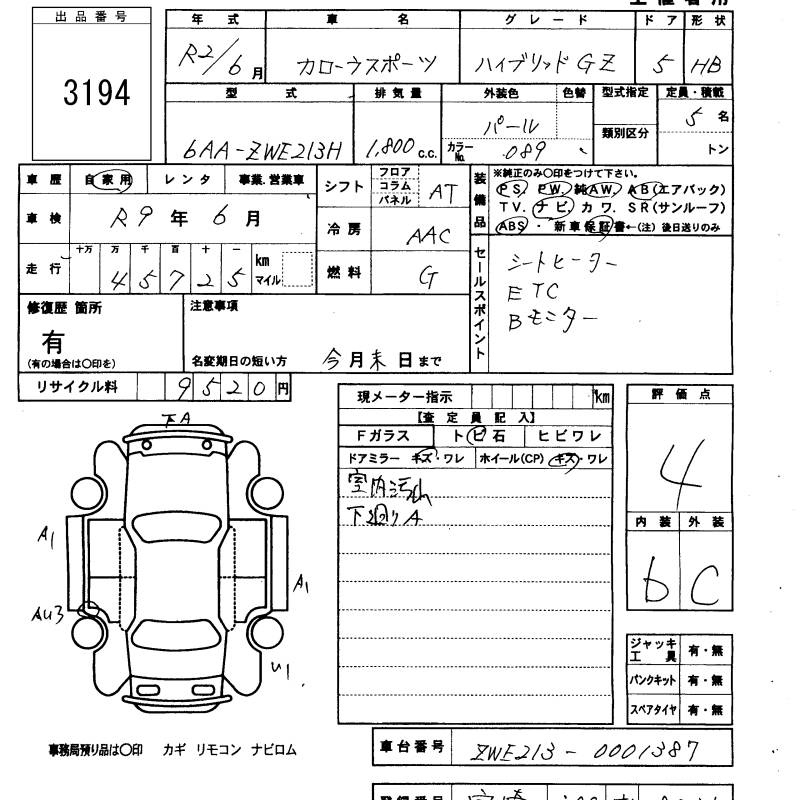 出品番号
3194
年式 車名 グレード ドア 形状
R2/6月 カローラスポーツ ハイブリッドGZ 5 HB
型式 排気量 外装色 色替 型式指定 定員・積載
6AA-ZWE213H 1,800c.c. パール 類別区分 5名
カラーNo. 089 トン
車歴 自家用 レンタ 事業.営業車
車検 R9年6月
十万 万 千 百 十 一
走行 45725 km マイル
シフト フロア コラム パネル AT
冷房 AAC
燃料 G
装備品
※純正のみ〇印をつけて下さい。
PS. PW. 純AW. AB(エアバック)
TV. ナビ. カワ. SR(サンルーフ)
ABS・新車保証書←(注) 後日送りのみ
セールスポイント
シートヒーター
ETC
Bモニター
修復歴 箇所
有
(有の場合は〇印を)
注意事項
名変期日の短い方 今月末日まで
リサイクル料 9520円
現メーター指示 km
【査定員記入】
Fガラス トビ石 ヒビワレ
ドアミラー キズ・ワレ ホイール(CP) キズ・ワレ
室内汚れ
下廻りA
評価点
4
内装 外装
b C
下A
A1
A1
AU3
U1
ジャッキ工具 有・無
パンクキット 有・無
スペアタイヤ 有・無
事務局預り品は〇印 カギ リモコン ナビロム
車台番号 ZWE213-0001387